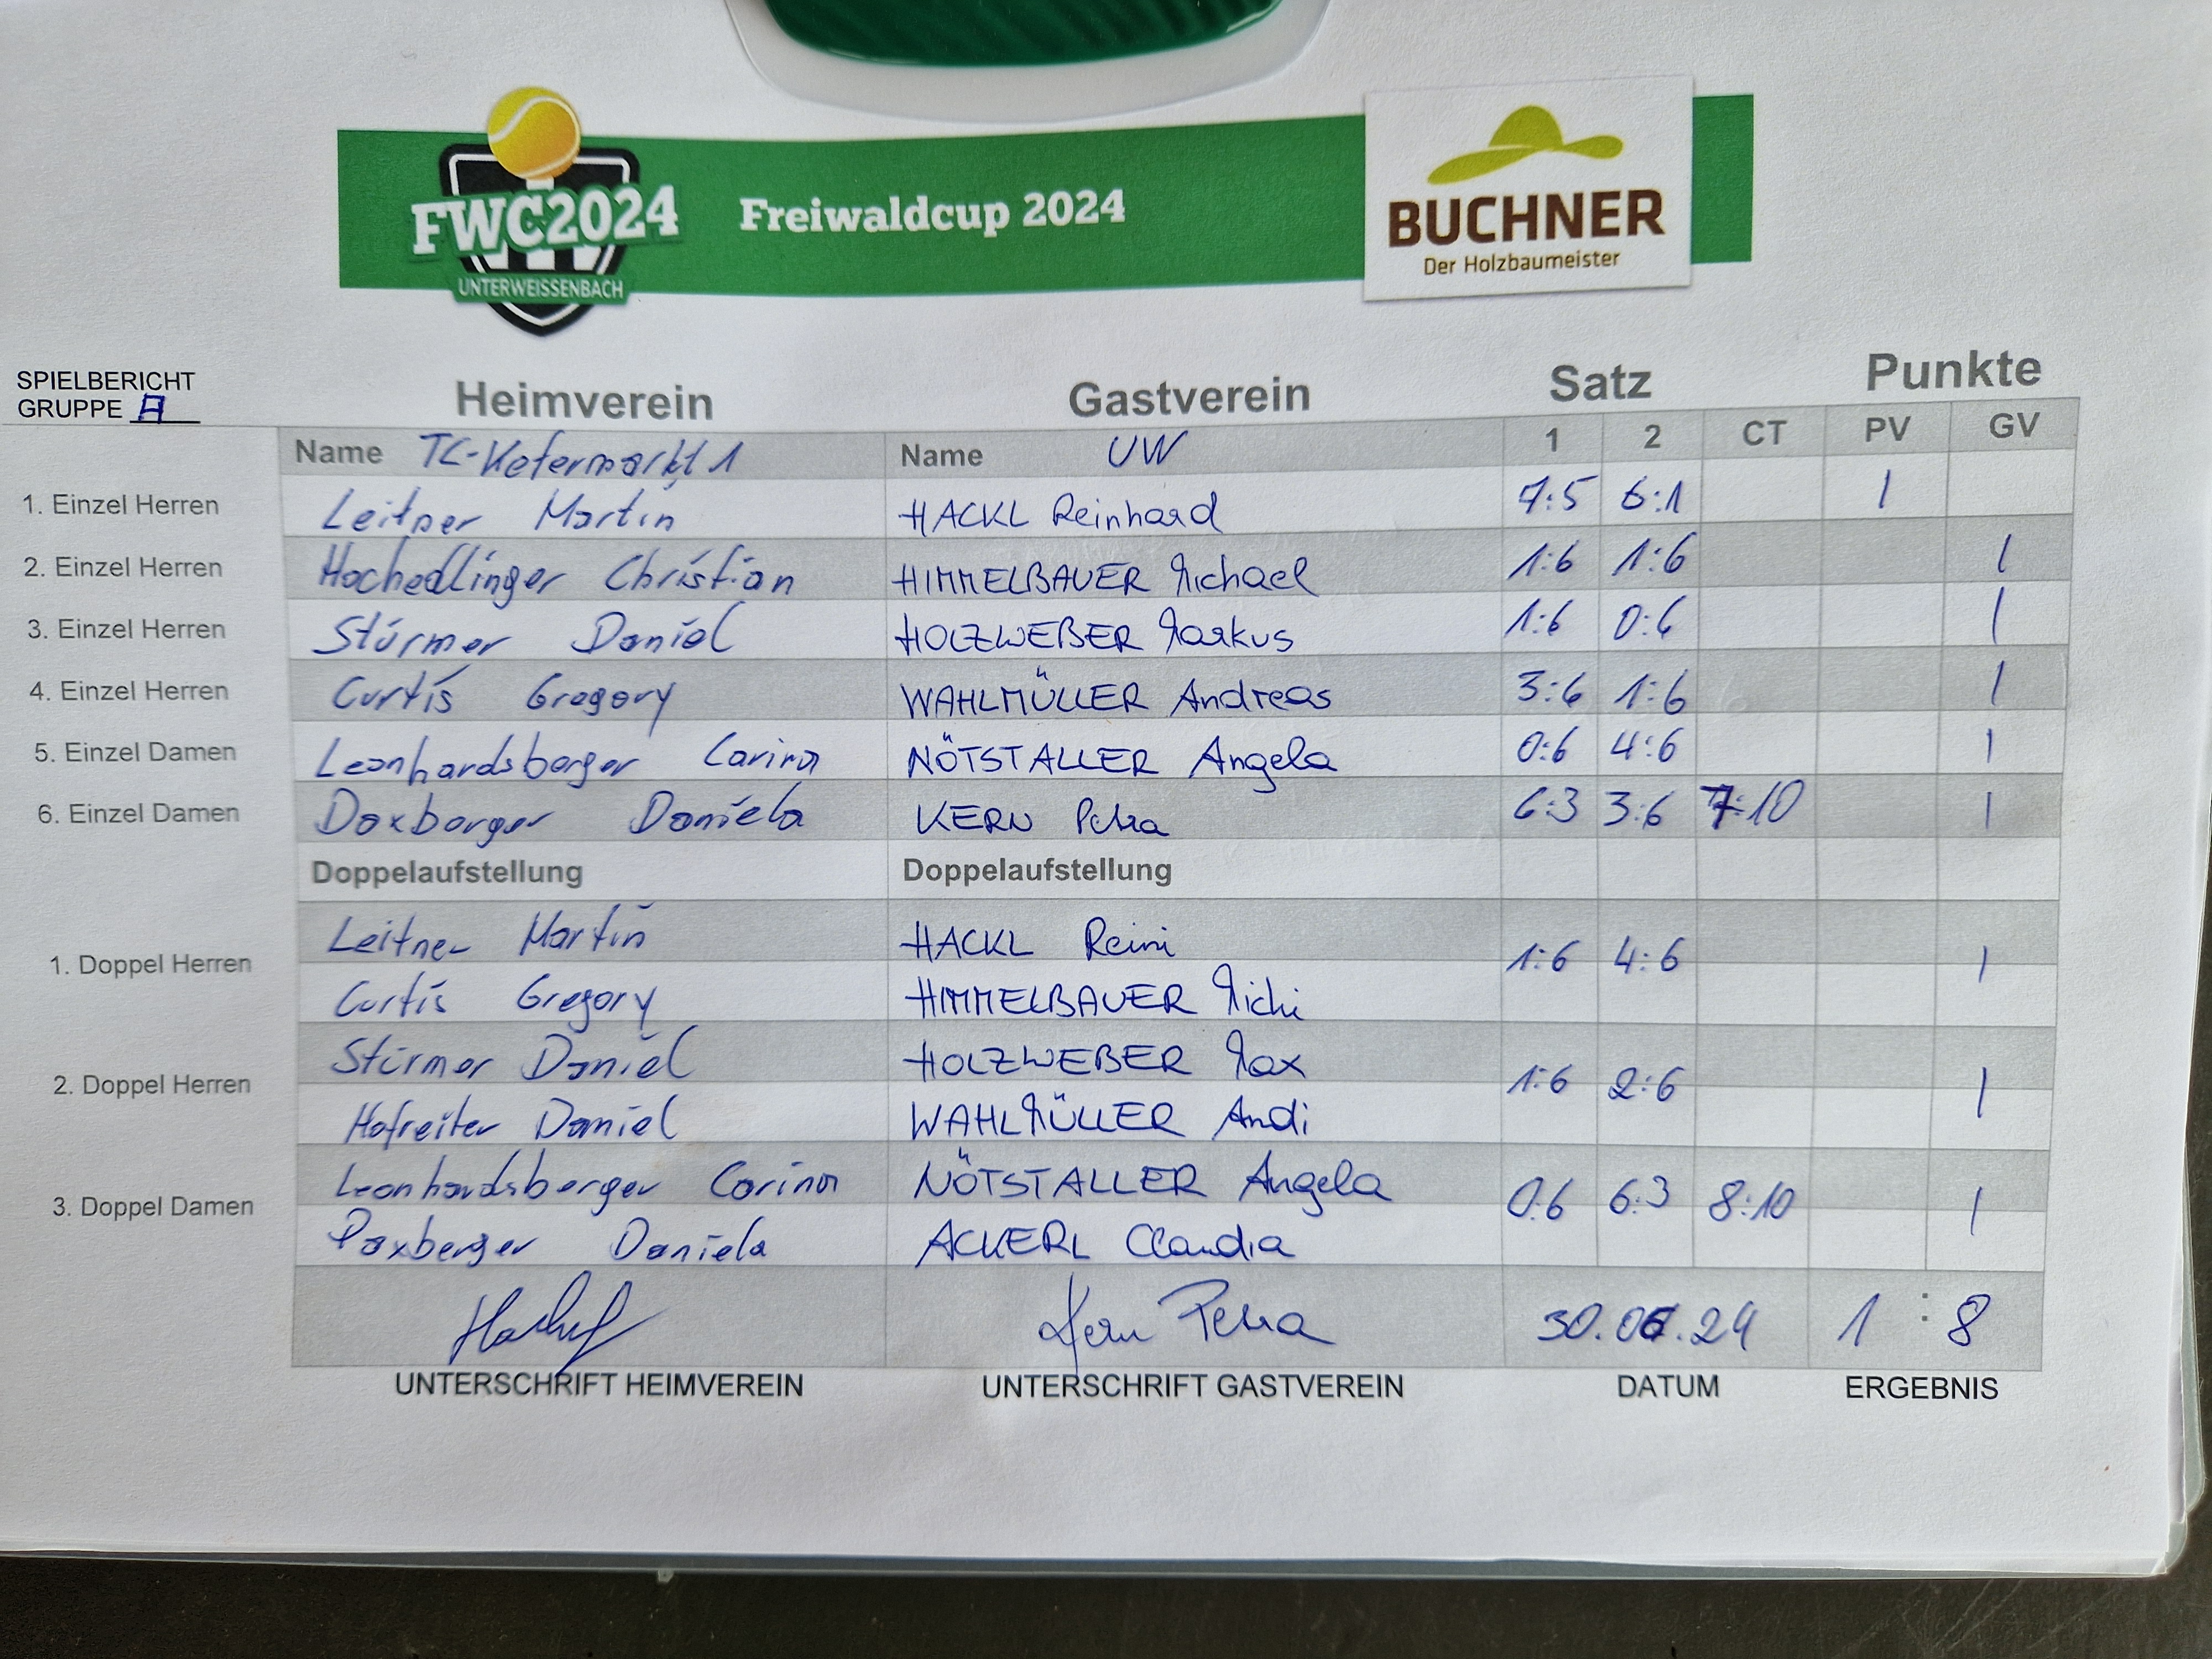 FWC2024
UNTERWEISSENBACH
Freiwaldcup 2024
BUCHNER
Der Holzbaumeister
SPIELBERICHT
GRUPPE A
Heimverein Gastverein Satz Punkte
Name TC-Kefermarkt 1 Name UW 1 2 CT PV GV
1. Einzel Herren Leitner Martin HACKL Reinhard 7:5 6:1 1
2. Einzel Herren Hochedlinger Christian HIMMELBAUER Michael 1:6 1:6 1
3. Einzel Herren Stürmer Daniel HOLZWEBER Markus 1:6 0:6 1
4. Einzel Herren Curtis Gregory WAHLMÜLLER Andreas 3:6 1:6 1
5. Einzel Damen Leonhardsberger Carina NÖTSTALLER Angela 0:6 4:6 1
6. Einzel Damen Daxberger Daniela KERN Petra 6:3 3:6 7:10 1
Doppelaufstellung Doppelaufstellung
Leitner Martin HACKL Reini
1. Doppel Herren 1:6 4:6 1
Curtis Gregory HIMMELBAUER Michi
Stürmer Daniel HOLZWEBER Max
2. Doppel Herren 1:6 2:6 1
Hofreiter Daniel WAHLMÜLLER Andi
Leonhardsberger Carina NÖTSTALLER Angela
3. Doppel Damen 0:6 6:3 8:10 1
Daxberger Daniela ACKERL Claudia
Kern Petra 30.06.24 1 : 8
UNTERSCHRIFT HEIMVEREIN UNTERSCHRIFT GASTVEREIN DATUM ERGEBNIS